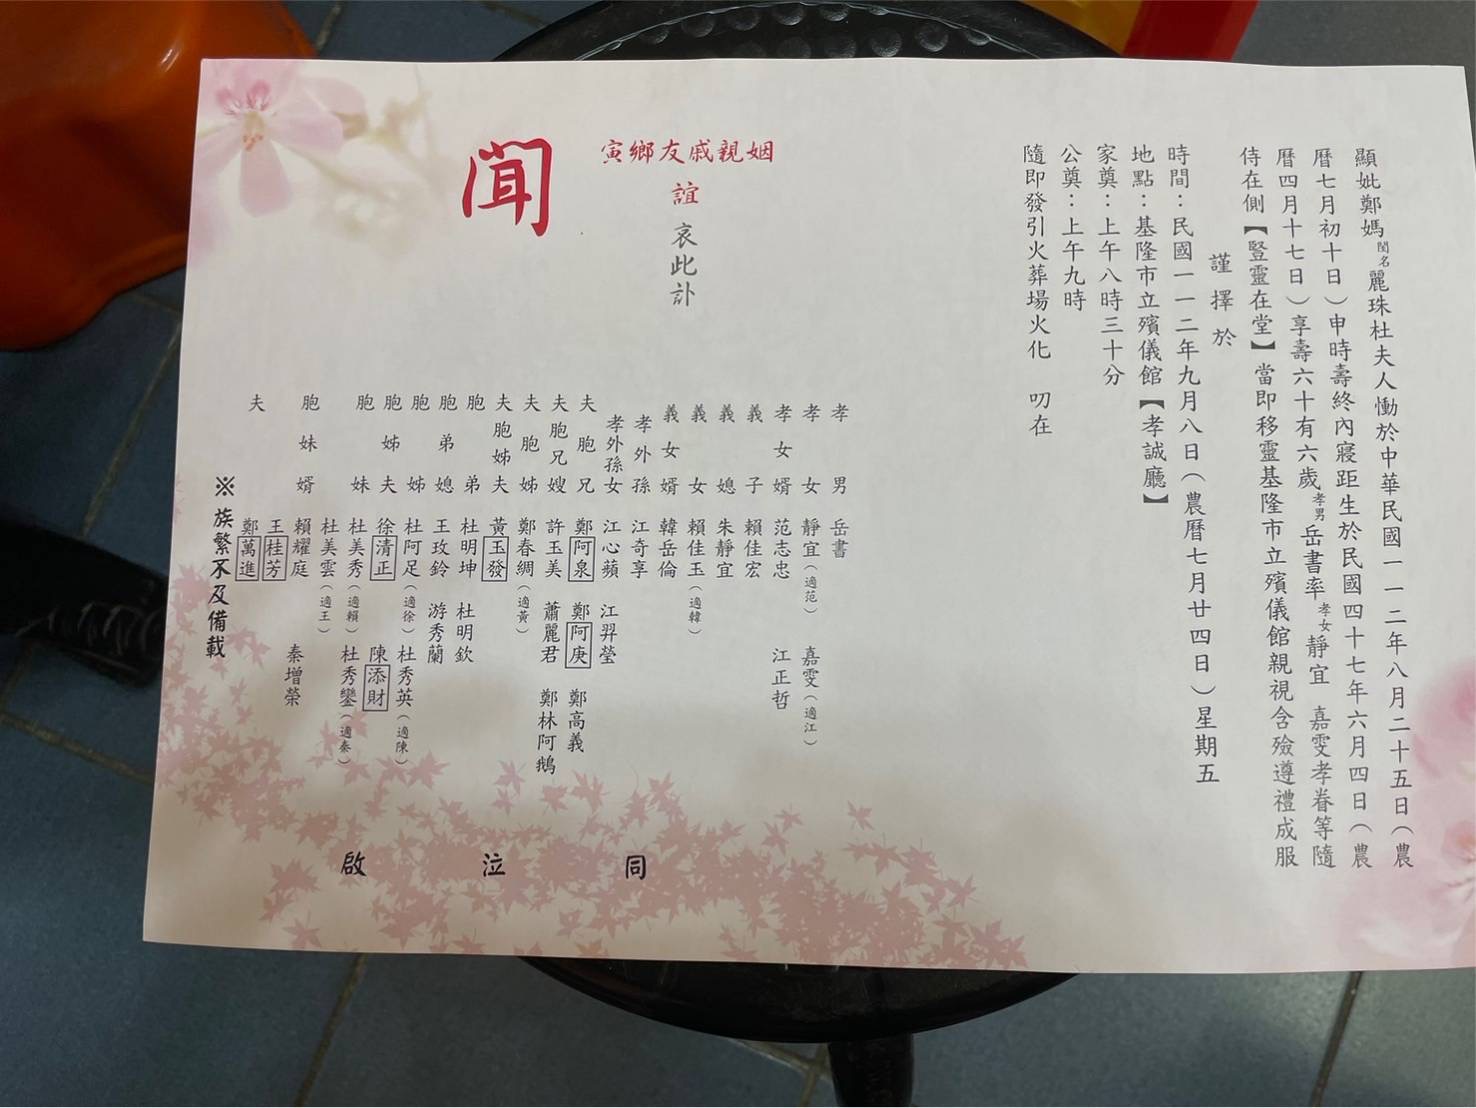 顯妣鄭媽閨名麗珠杜夫人慟於中華民國一一二年八月二十五日（農
曆七月初十日）申時壽終內寢距生於民國四十七年六月四日（農
曆四月十七日）享壽六十有六歲孝男岳書率孝女靜宜 嘉雯孝眷等隨
侍在側【豎靈在堂】當即移靈基隆市立殯儀館親視含殮遵禮成服
謹擇於
時間：民國一一二年九月八日（農曆七月廿四日）星期五
地點：基隆市立殯儀館【孝誠廳】
家奠：上午八時三十分
公奠：上午九時
隨即發引火葬場火化 叨在
姻親戚友鄉寅
誼哀此訃
聞
孝男 岳書
孝女 靜宜（適范） 嘉雯（適江）
孝女婿 范志忠 江正哲
義子 賴佳宏
義媳 朱靜宜
義女 賴佳玉（適韓）
義女婿 韓岳倫
孝外孫 江奇享
孝外孫女 江心蘋 江羿瑩
夫胞兄 鄭阿泉 鄭阿庚 鄭高義
夫胞兄嫂 許玉美 蕭麗君 鄭林阿鵝
夫胞姊 鄭春綢（適黃）
夫胞姊夫 黃玉發
胞弟 杜明坤 杜明欽
胞弟媳 王玫鈴 游秀蘭
胞姊 杜阿足（適徐） 杜秀英（適陳）
胞姊夫 徐清正 陳添財
胞妹 杜美秀（適賴） 杜秀鑾（適秦）
杜美雲（適王）
胞妹婿 賴耀庭 秦增榮
王桂芳
夫 鄭萬進
※族繁不及備載
同泣啟